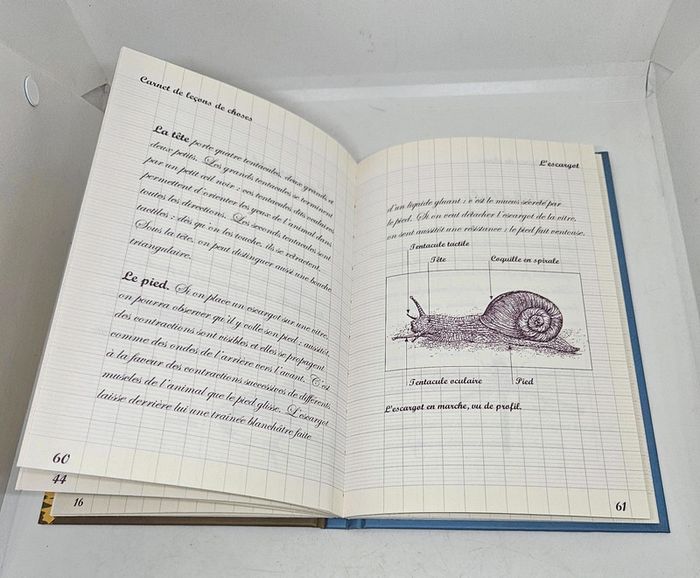 Carnet de leçons de choses
La tête porte quatre tentacules, deux grands et
deux petits. Les grands tentacules se terminent
par un petit œil noir : ces tentacules dits oculaires
permettent d'orienter les yeux de l'animal dans
toutes les directions. Les seconds tentacules sont
tactiles : dès qu'on les touche, ils se rétractent.
Sous la tête, on peut distinguer aussi une bouche
triangulaire.
Le pied. Si on place un escargot sur une vitre,
on pourra observer qu'il y colle son pied : aussitôt
des contractions sont visibles et elles se propagent
comme des ondes de l'arrière vers l'avant. C'est
à la faveur des contractions successives de différents
muscles de l'animal que le pied glisse. L'escargot
laisse derrière lui une traînée blanchâtre faite
60
44
16
L'escargot
d'un liquide gluant : c'est le mucus sécrété par
le pied. Si on veut détacher l'escargot de la vitre,
on sent aussitôt une résistance : le pied fait ventouse.
Tentacule tactile
Tête
Coquille en spirale
Tentacule oculaire
Pied
L'escargot en marche, vu de profil.
61